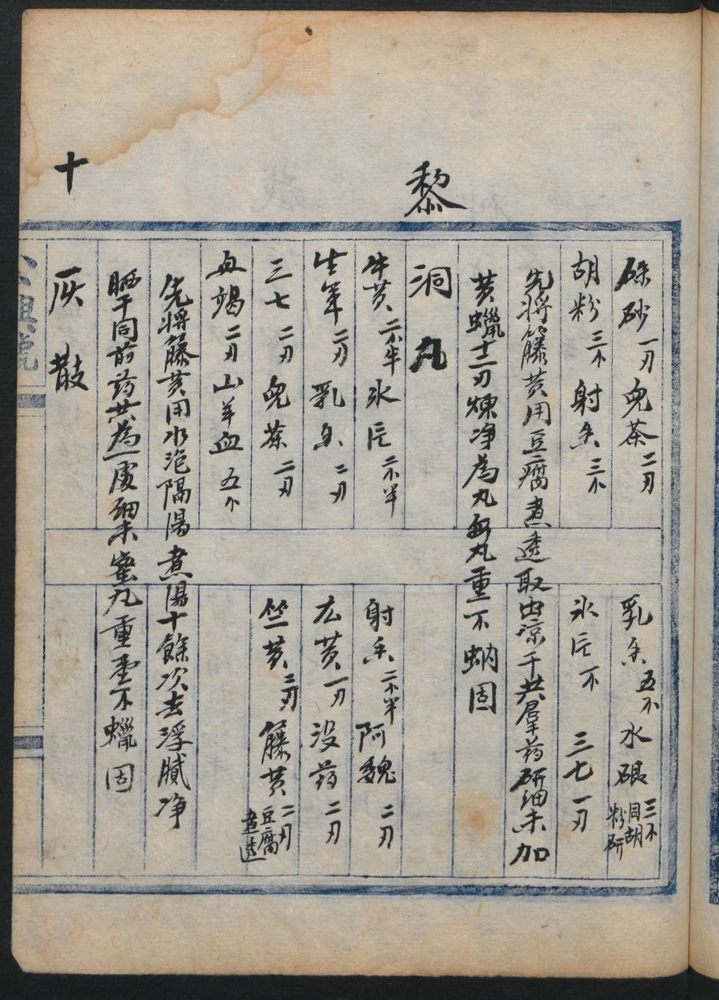 硃砂一刃兒茶二刃 乳香五个水硍三个同胡粉研
胡粉三个射香三个 氷片不 三七一刃
先將籐黃用豆腐煮透取出凉干共群药研細末加
黃蠟十二刃煉净為丸每丸重不蚋固
黎
洞丸
牛黃二个半氷片二个半 射香二个半阿魏二刃
生軍二刃乳香二刃 広黃一刃没药二刃
三七二刃兒茶二刃 竺黃二刃籐黃二刃豆腐煮透
血竭二刃山羊血五个
先將籐黃用水泡隔湯煮湯十餘次去浮膩净
晒干同前药共為虔細末蜜丸重壹不蠟固
十
灰散